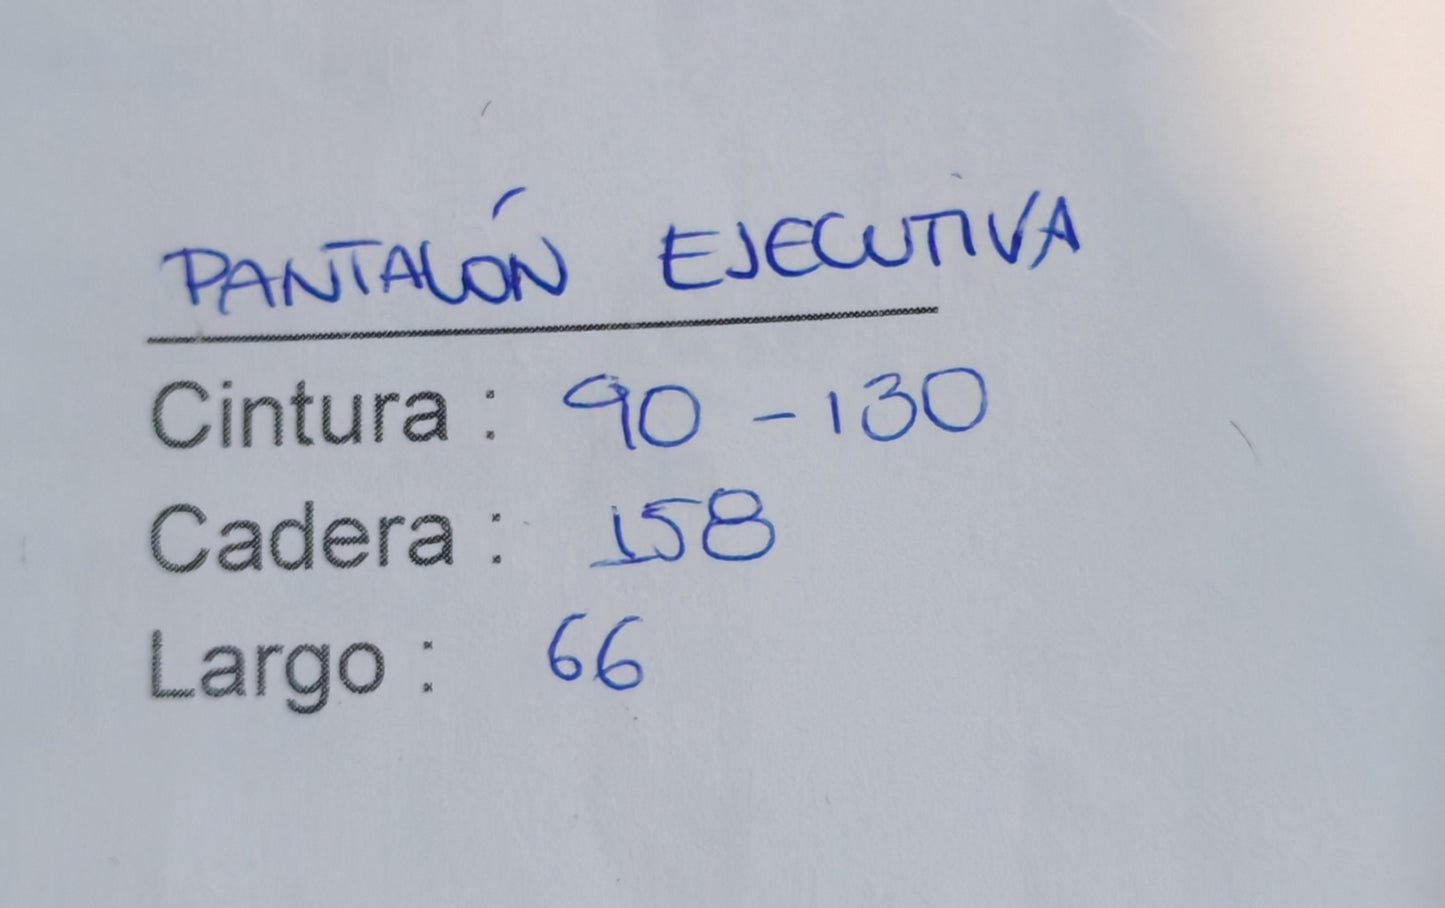 PANTALÓN EJECUTIVA
Cintura : 90 - 130
Cadera : 158
Largo : 66